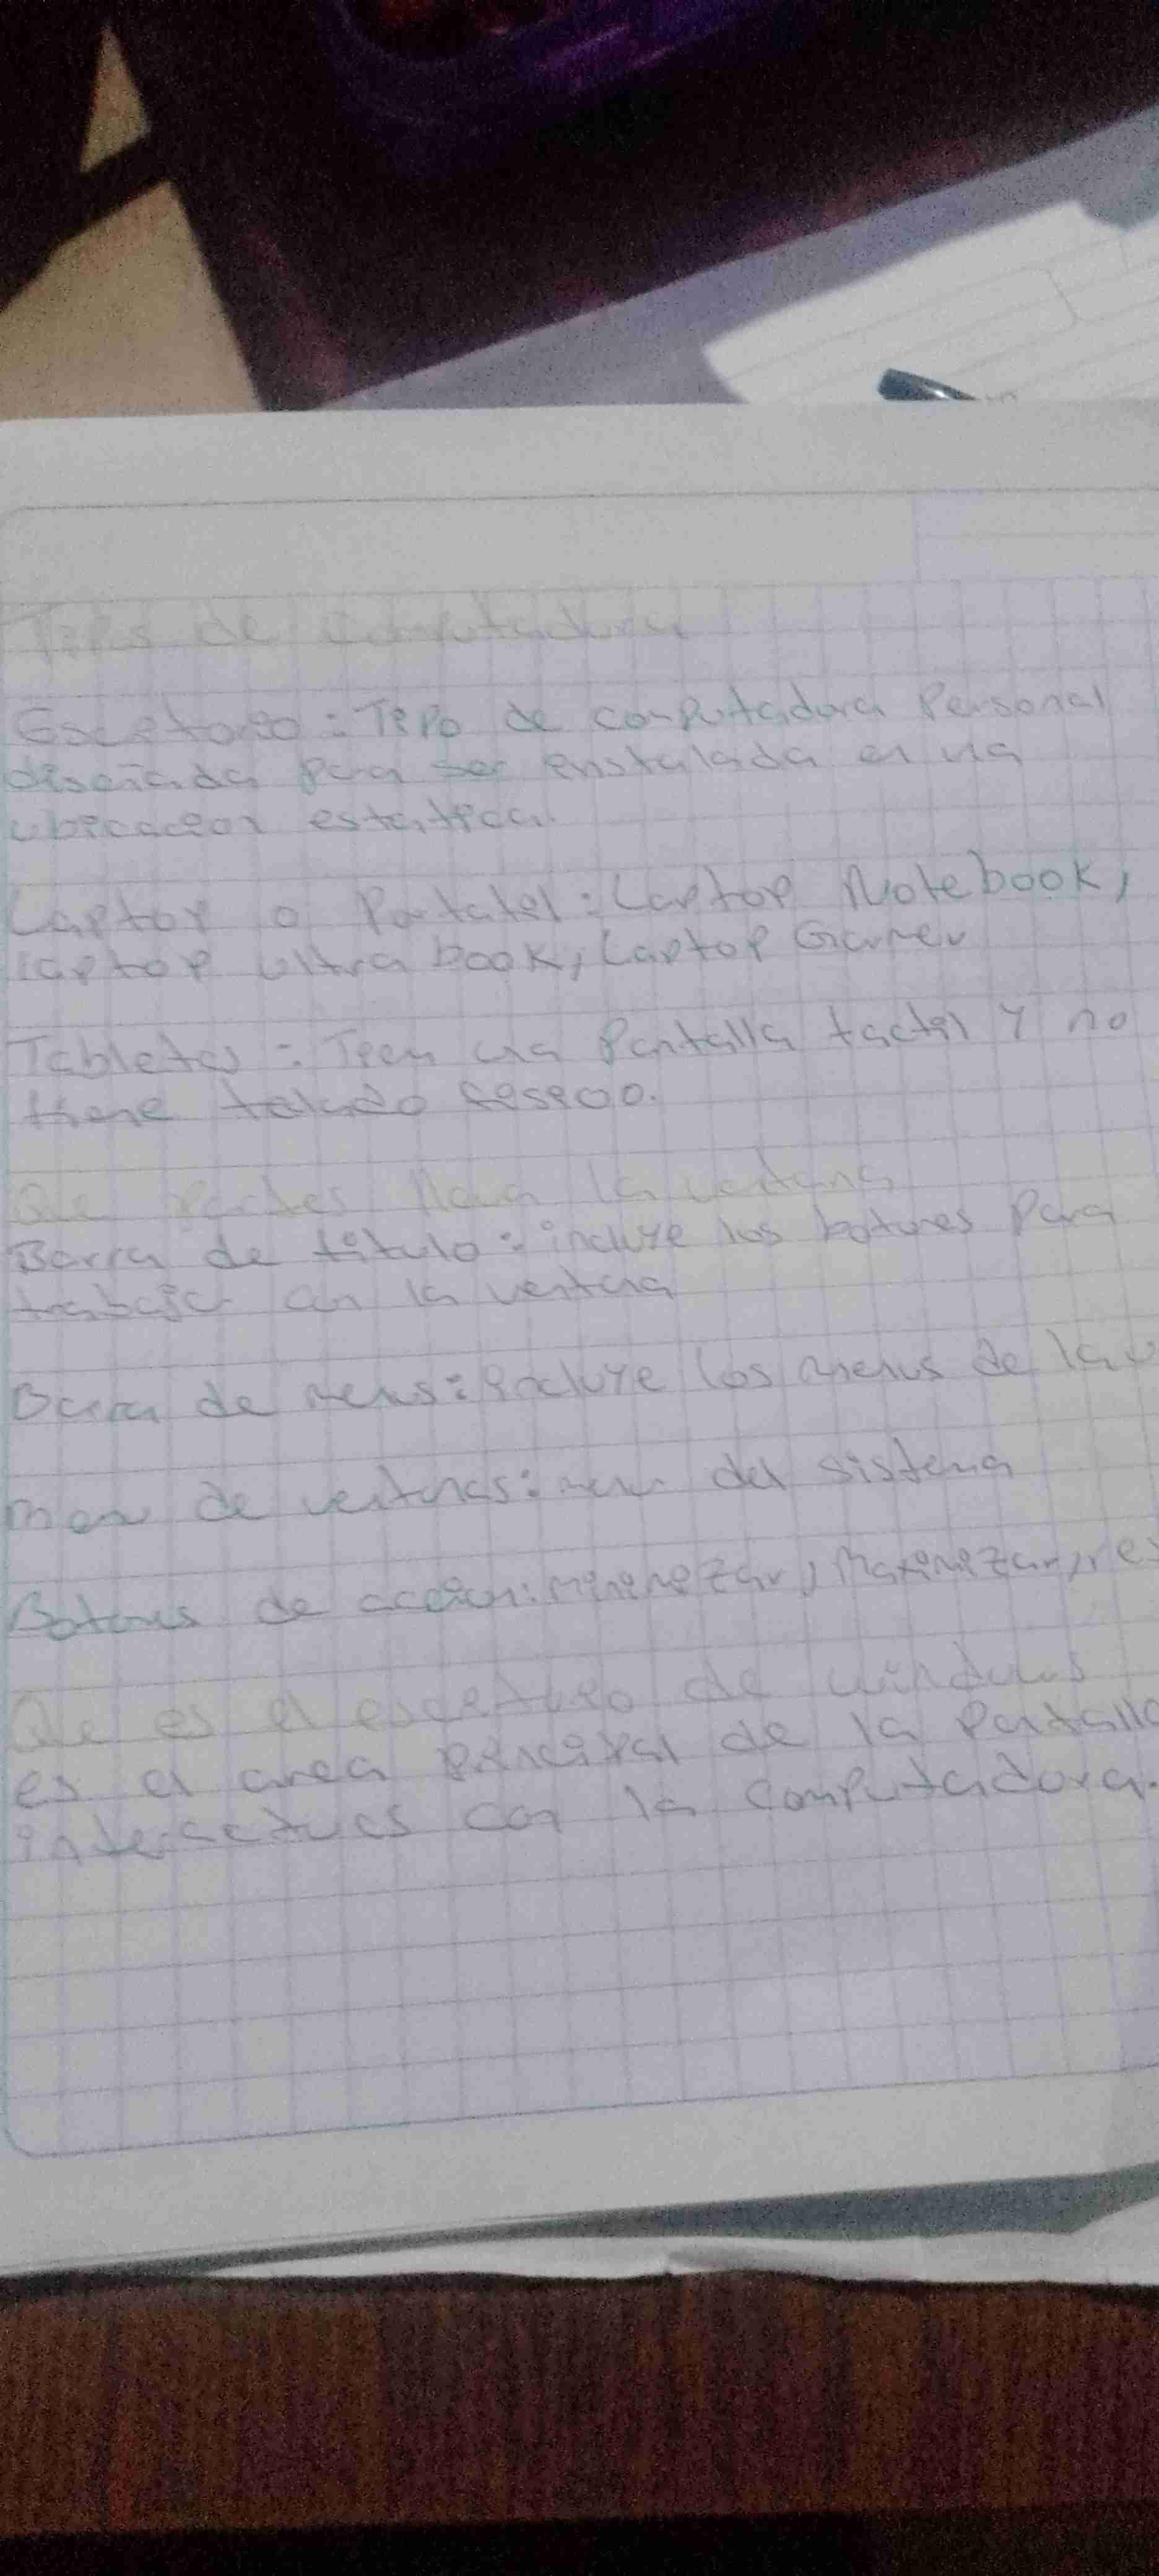 Tipos de computadora
Escritorio: Tipo de computadora Personal
diseñada para ser instalada en una
ubicacion estatica.
Laptop o Portatil: Laptop Notebook,
laptop ultra book, Laptop Gamer
Tabletas: Tienen una Pantalla tactil y no
tiene teclado fisico.
Que partes lleva la ventana
Barra de titulo: incluye los botones para
trabajar con la ventana
Barra de menus: incluye los menus de la
menu de ventanas: menu del sistema
Botones de accion: Minimizar, Maximizar,
Que es el escritorio de windows
es el area principal de la Pantalla
interactues con la computadora.